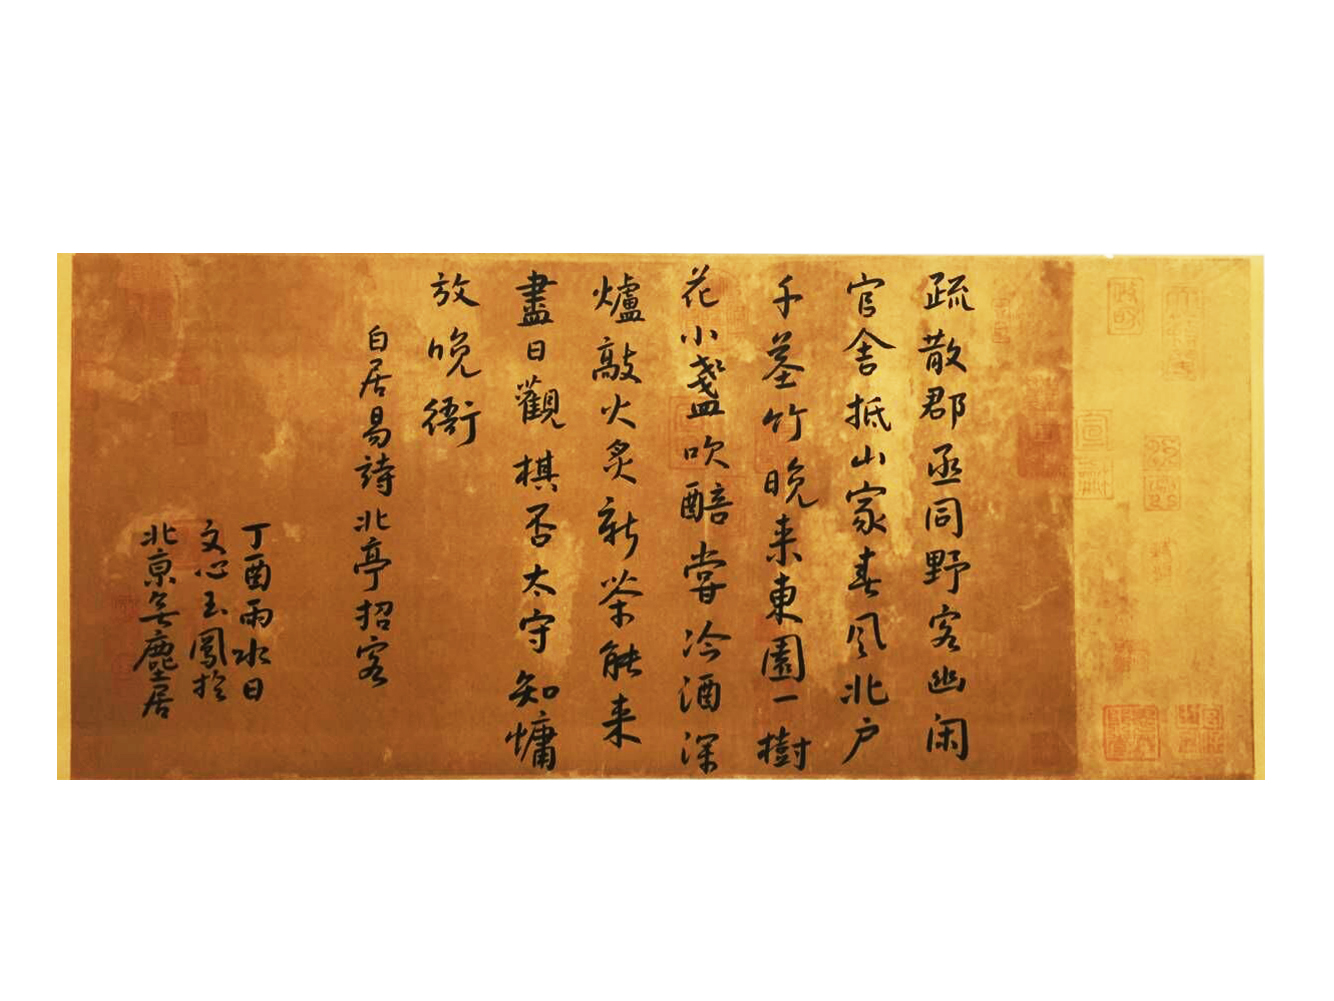 疏散郡丞同野客幽闲
官舍抵山家春风北户
千茎竹晚来東園一樹
花小盞吹醅嘗冷酒深
爐敲火炙新茶能来
盡日觀棋否太守知慵
放晚衙
白居易詩北亭招客
丁酉雨水日
文心玉鳳於
北京無塵居